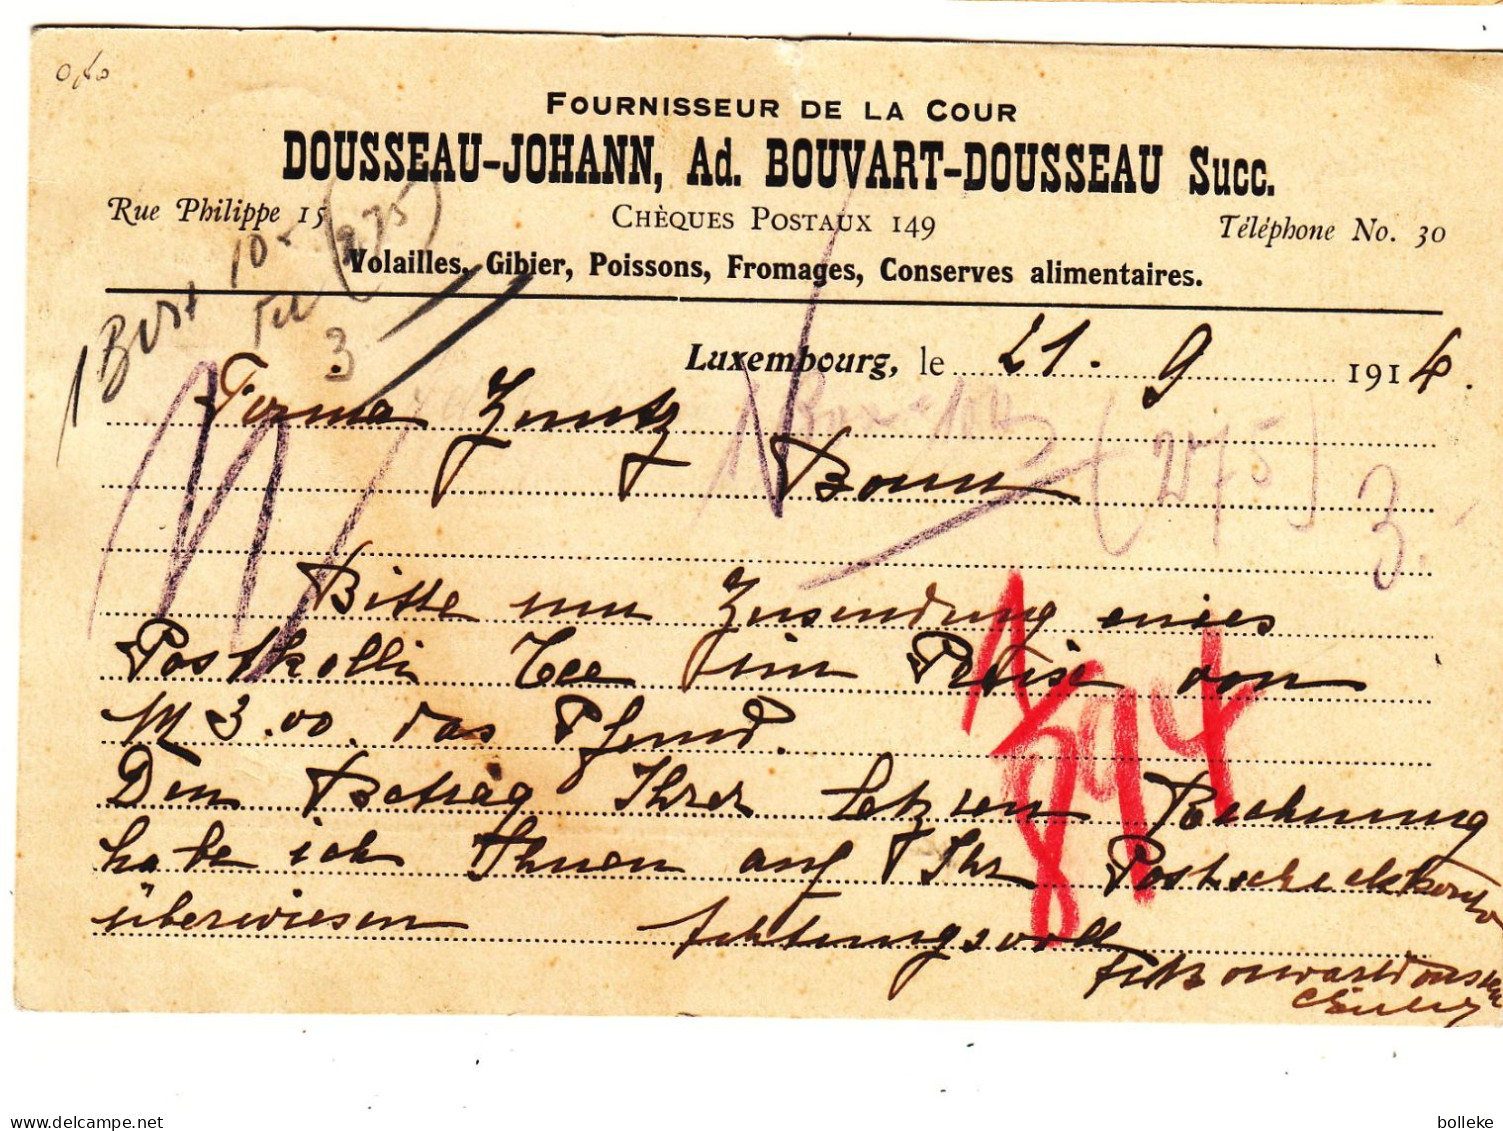 FOURNISSEUR DE LA COUR
DOUSSEAU-JOHANN, Ad. BOUVART-DOUSSEAU Succ.
Rue Philippe 15 CHÈQUES POSTAUX 149 Téléphone No. 30
Volailles, Gibier, Poissons, Fromages, Conserves alimentaires.
10 (275)
3
Luxembourg, le 21. 9 1914.
Firma Zuntz
Bonn
(275) 3.-
Bitte um Zusendung eines
Postkolli Tee im Preise von
M 3.00. das Pfund.
Den Betrag Ihrer letzten Rechnung
habe ich Ihnen auf Ihr Postscheckkonto
überwiesen Achtungsvoll
bolleke